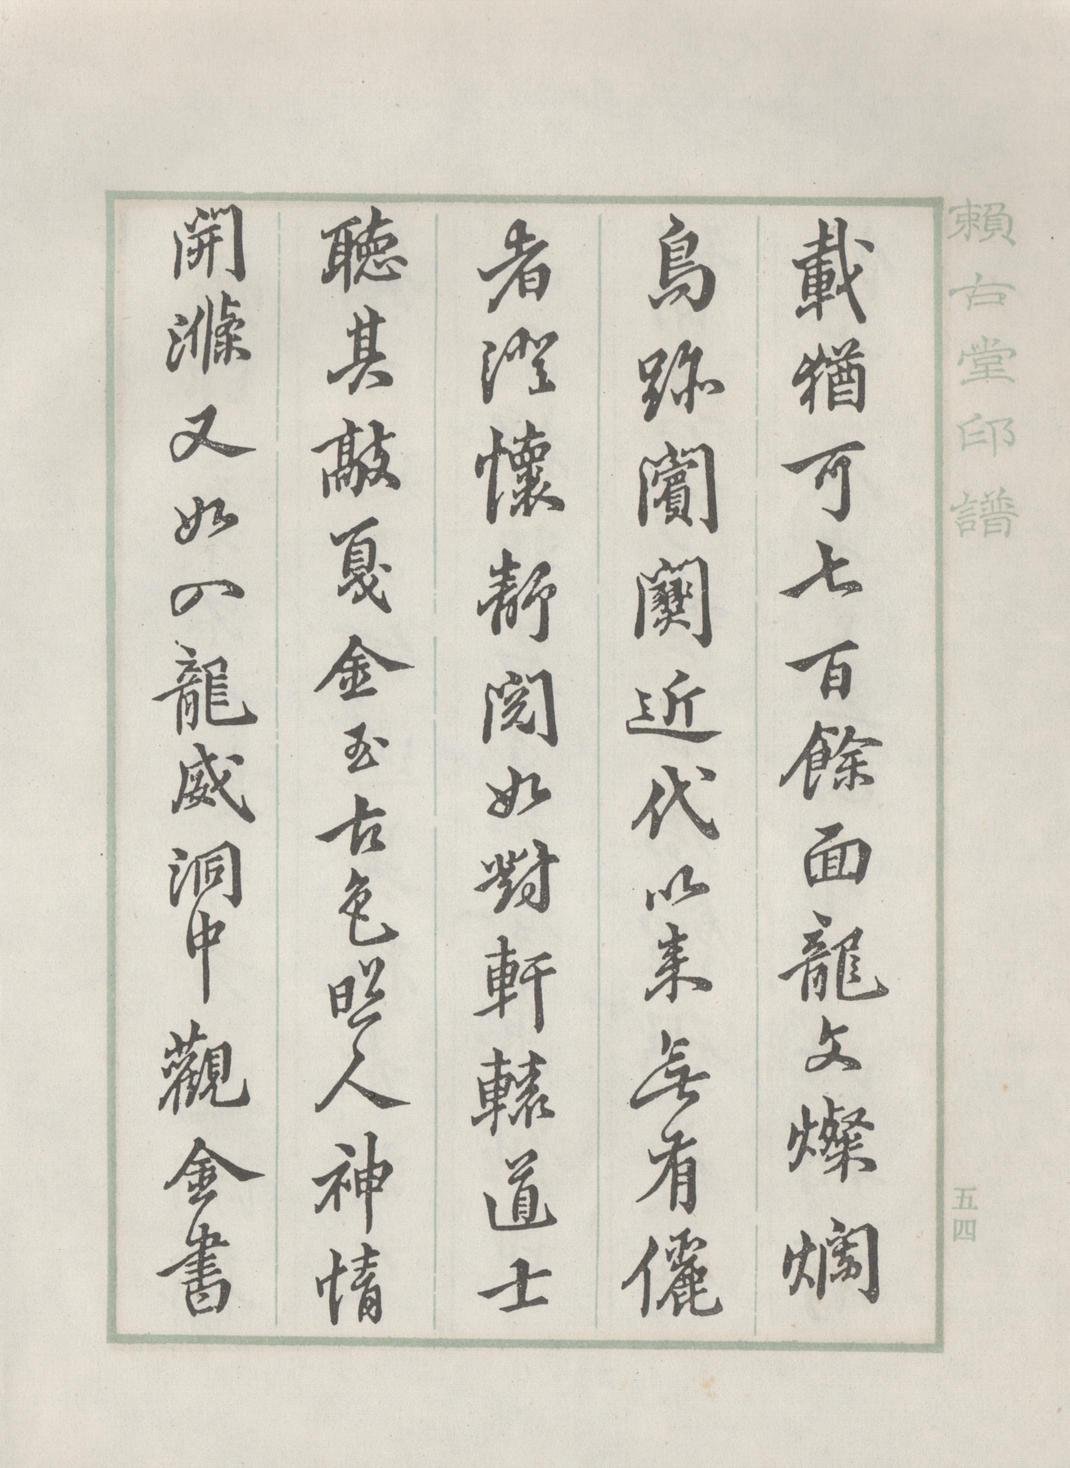 賴古堂印譜
載猶可七百餘面龍文燦爛
鳥跡近代以来無有儷
者澄懷靜閱如對軒轅道士
聽其敲戛金玉古色照人神情
開滌又如入龍威洞中觀金書
五四